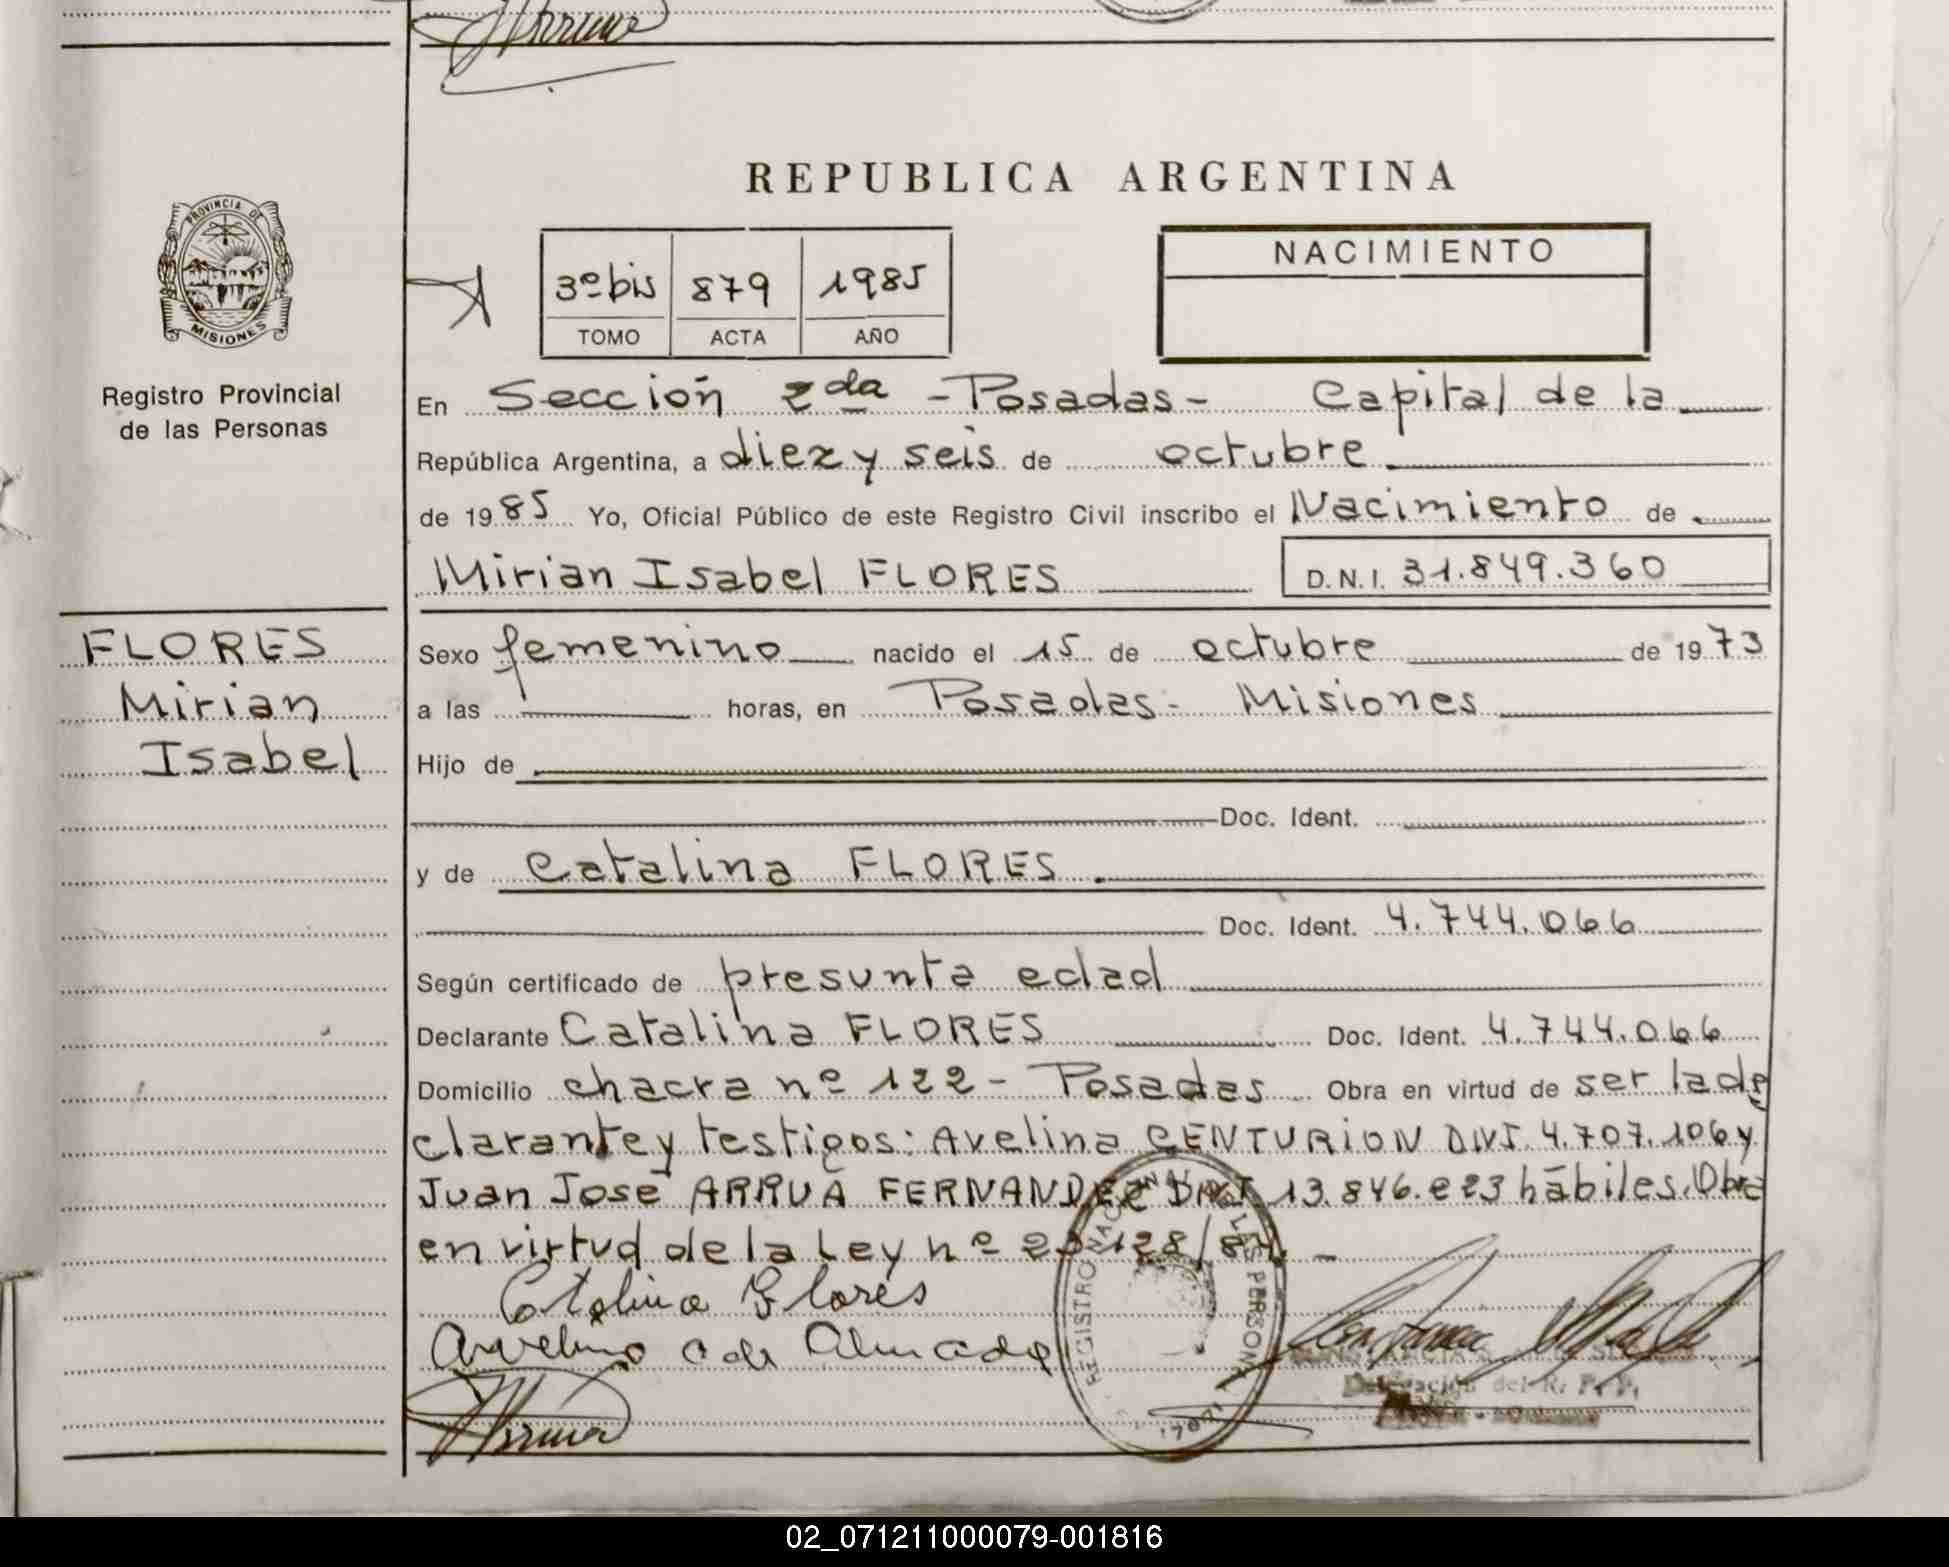 PROVINCIA DE
MISIONES
Registro Provincial
de las Personas
FLORES
Mirian
Isabel
REPUBLICA ARGENTINA
3º bis 879 1985
TOMO ACTA AÑO
NACIMIENTO
En Sección 2da - Posadas - Capital de la
República Argentina, a diez y seis de octubre
de 1985 Yo, Oficial Público de este Registro Civil inscribo el Nacimiento de
Mirian Isabel FLORES D.N.I. 31.849.360
Sexo femenino nacido el 15 de octubre de 1973
a las horas, en Posadas - Misiones
Hijo de
Doc. Ident.
y de Catalina FLORES
Doc. Ident. 4.744.066
Según certificado de presunta edad
Declarante Catalina FLORES Doc. Ident. 4.744.066
Domicilio chacra nº 122 - Posadas Obra en virtud de ser la de
clarante y testigos: Avelina CENTURION DNI. 4.707.106 y
Juan Jose ARRUA FERNANDEZ DNI 13.846.223 hábiles. Obra
en virtud de la Ley nº 23.128/84. -
Catalina Flores
Avelina C de Almada
REGISTRO NACIONAL DE LAS PERSONAS
Delegación del R. P. P.
02_071211000079-001816